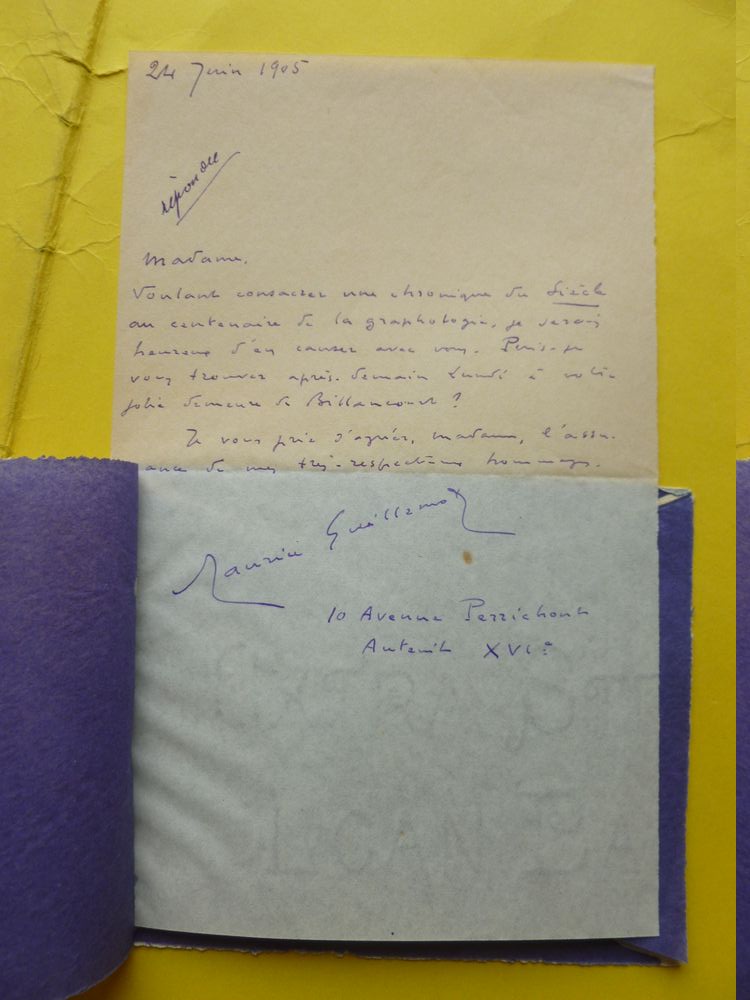 24 Juin 1905
répondu
Madame,
Voulant consacrer une chronique du Siècle
au centenaire de la graphologie, je serais
heureux d'en causer avec vous. Puis-je
vous trouver après-demain Lundi à votre
jolie demeure de Billancourt ?
Je vous prie d'agréer, madame, l'assu-
ance de mes très-respectueux hommages.
Maurice Guillemot
10 Avenue Perrichont
Auteuil XVIe